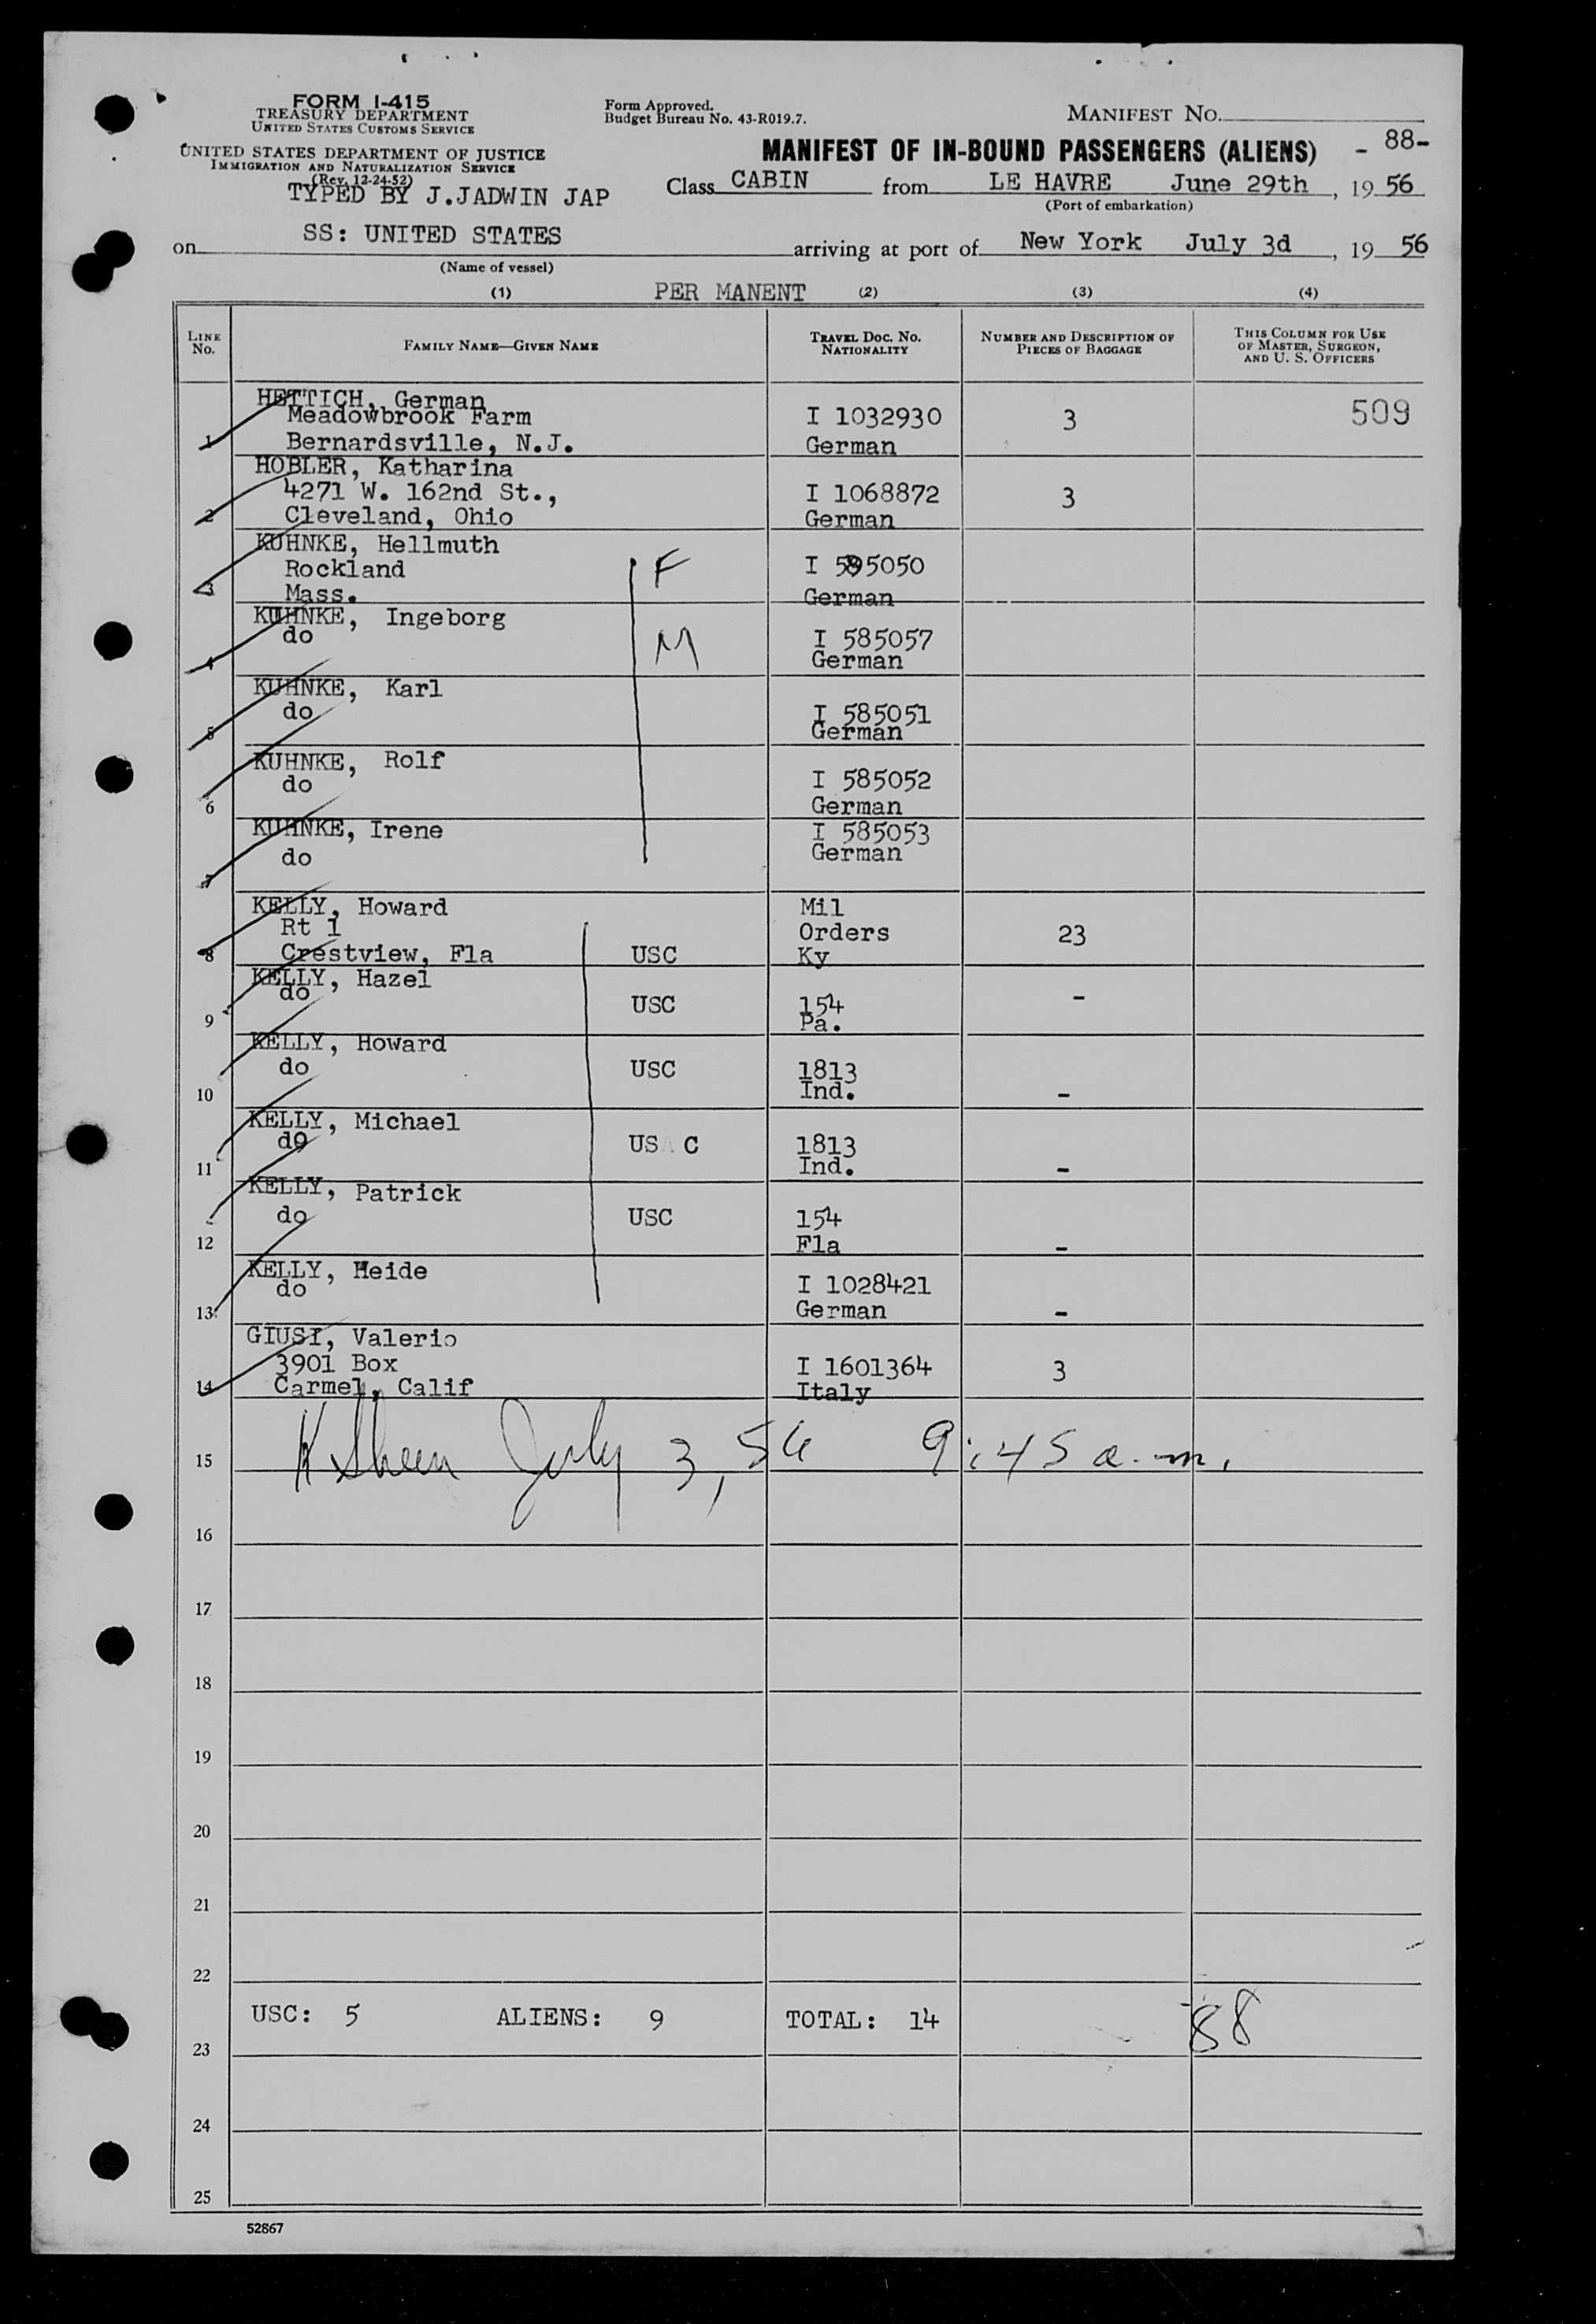 FORM I-415
TREASURY DEPARTMENT
UNITED STATES CUSTOMS SERVICE
UNITED STATES DEPARTMENT OF JUSTICE
IMMIGRATION AND NATURALIZATION SERVICE
(Rev. 12-24-52)
TYPED BY J.JADWIN JAP
Form Approved.
Budget Bureau No. 43-R019.7.
MANIFEST NO.
MANIFEST OF IN-BOUND PASSENGERS (ALIENS) - 88-
Class CABIN from LE HAVRE June 29th, 19 56
(Port of embarkation)
on SS: UNITED STATES arriving at port of New York July 3d, 19 56
(Name of vessel)
(1) PER MANENT (2) (3) (4)
LINE No. FAMILY NAME—GIVEN NAME TRAVEL DOC. NO. NATIONALITY NUMBER AND DESCRIPTION OF PIECES OF BAGGAGE THIS COLUMN FOR USE OF MASTER, SURGEON, AND U. S. OFFICERS
HETTICH, German
Meadowbrook Farm I 1032930 3 509
1 Bernardsville, N.J. German
HOBLER, Katharina
4271 W. 162nd St., I 1068872 3
2 Cleveland, Ohio German
KUHNKE, Hellmuth
Rockland F I 585050
3 Mass. German
KUHNKE, Ingeborg
do M I 585057
4 German
KUHNKE, Karl
do I 585051
5 German
KUHNKE, Rolf
do I 585052
6 German
KUHNKE, Irene I 585053
do German
7
KELLY, Howard Mil
Rt 1 Orders 23
8 Crestview, Fla USC Ky
KELLY, Hazel
do USC 154 -
9 Pa.
KELLY, Howard
do USC 1813
10 Ind. -
KELLY, Michael
do US C 1813
11 Ind. -
KELLY, Patrick
do USC 154
12 Fla -
KELLY, Heide
do I 1028421
13 German -
GIUSI, Valerio
3901 Box I 1601364 3
14 Carmel, Calif Italy
15 K Sheen July 3, 56 9:45 a.m.
16
17
18
19
20
21
22
USC: 5 ALIENS: 9 TOTAL: 14 88
23
24
25
52867